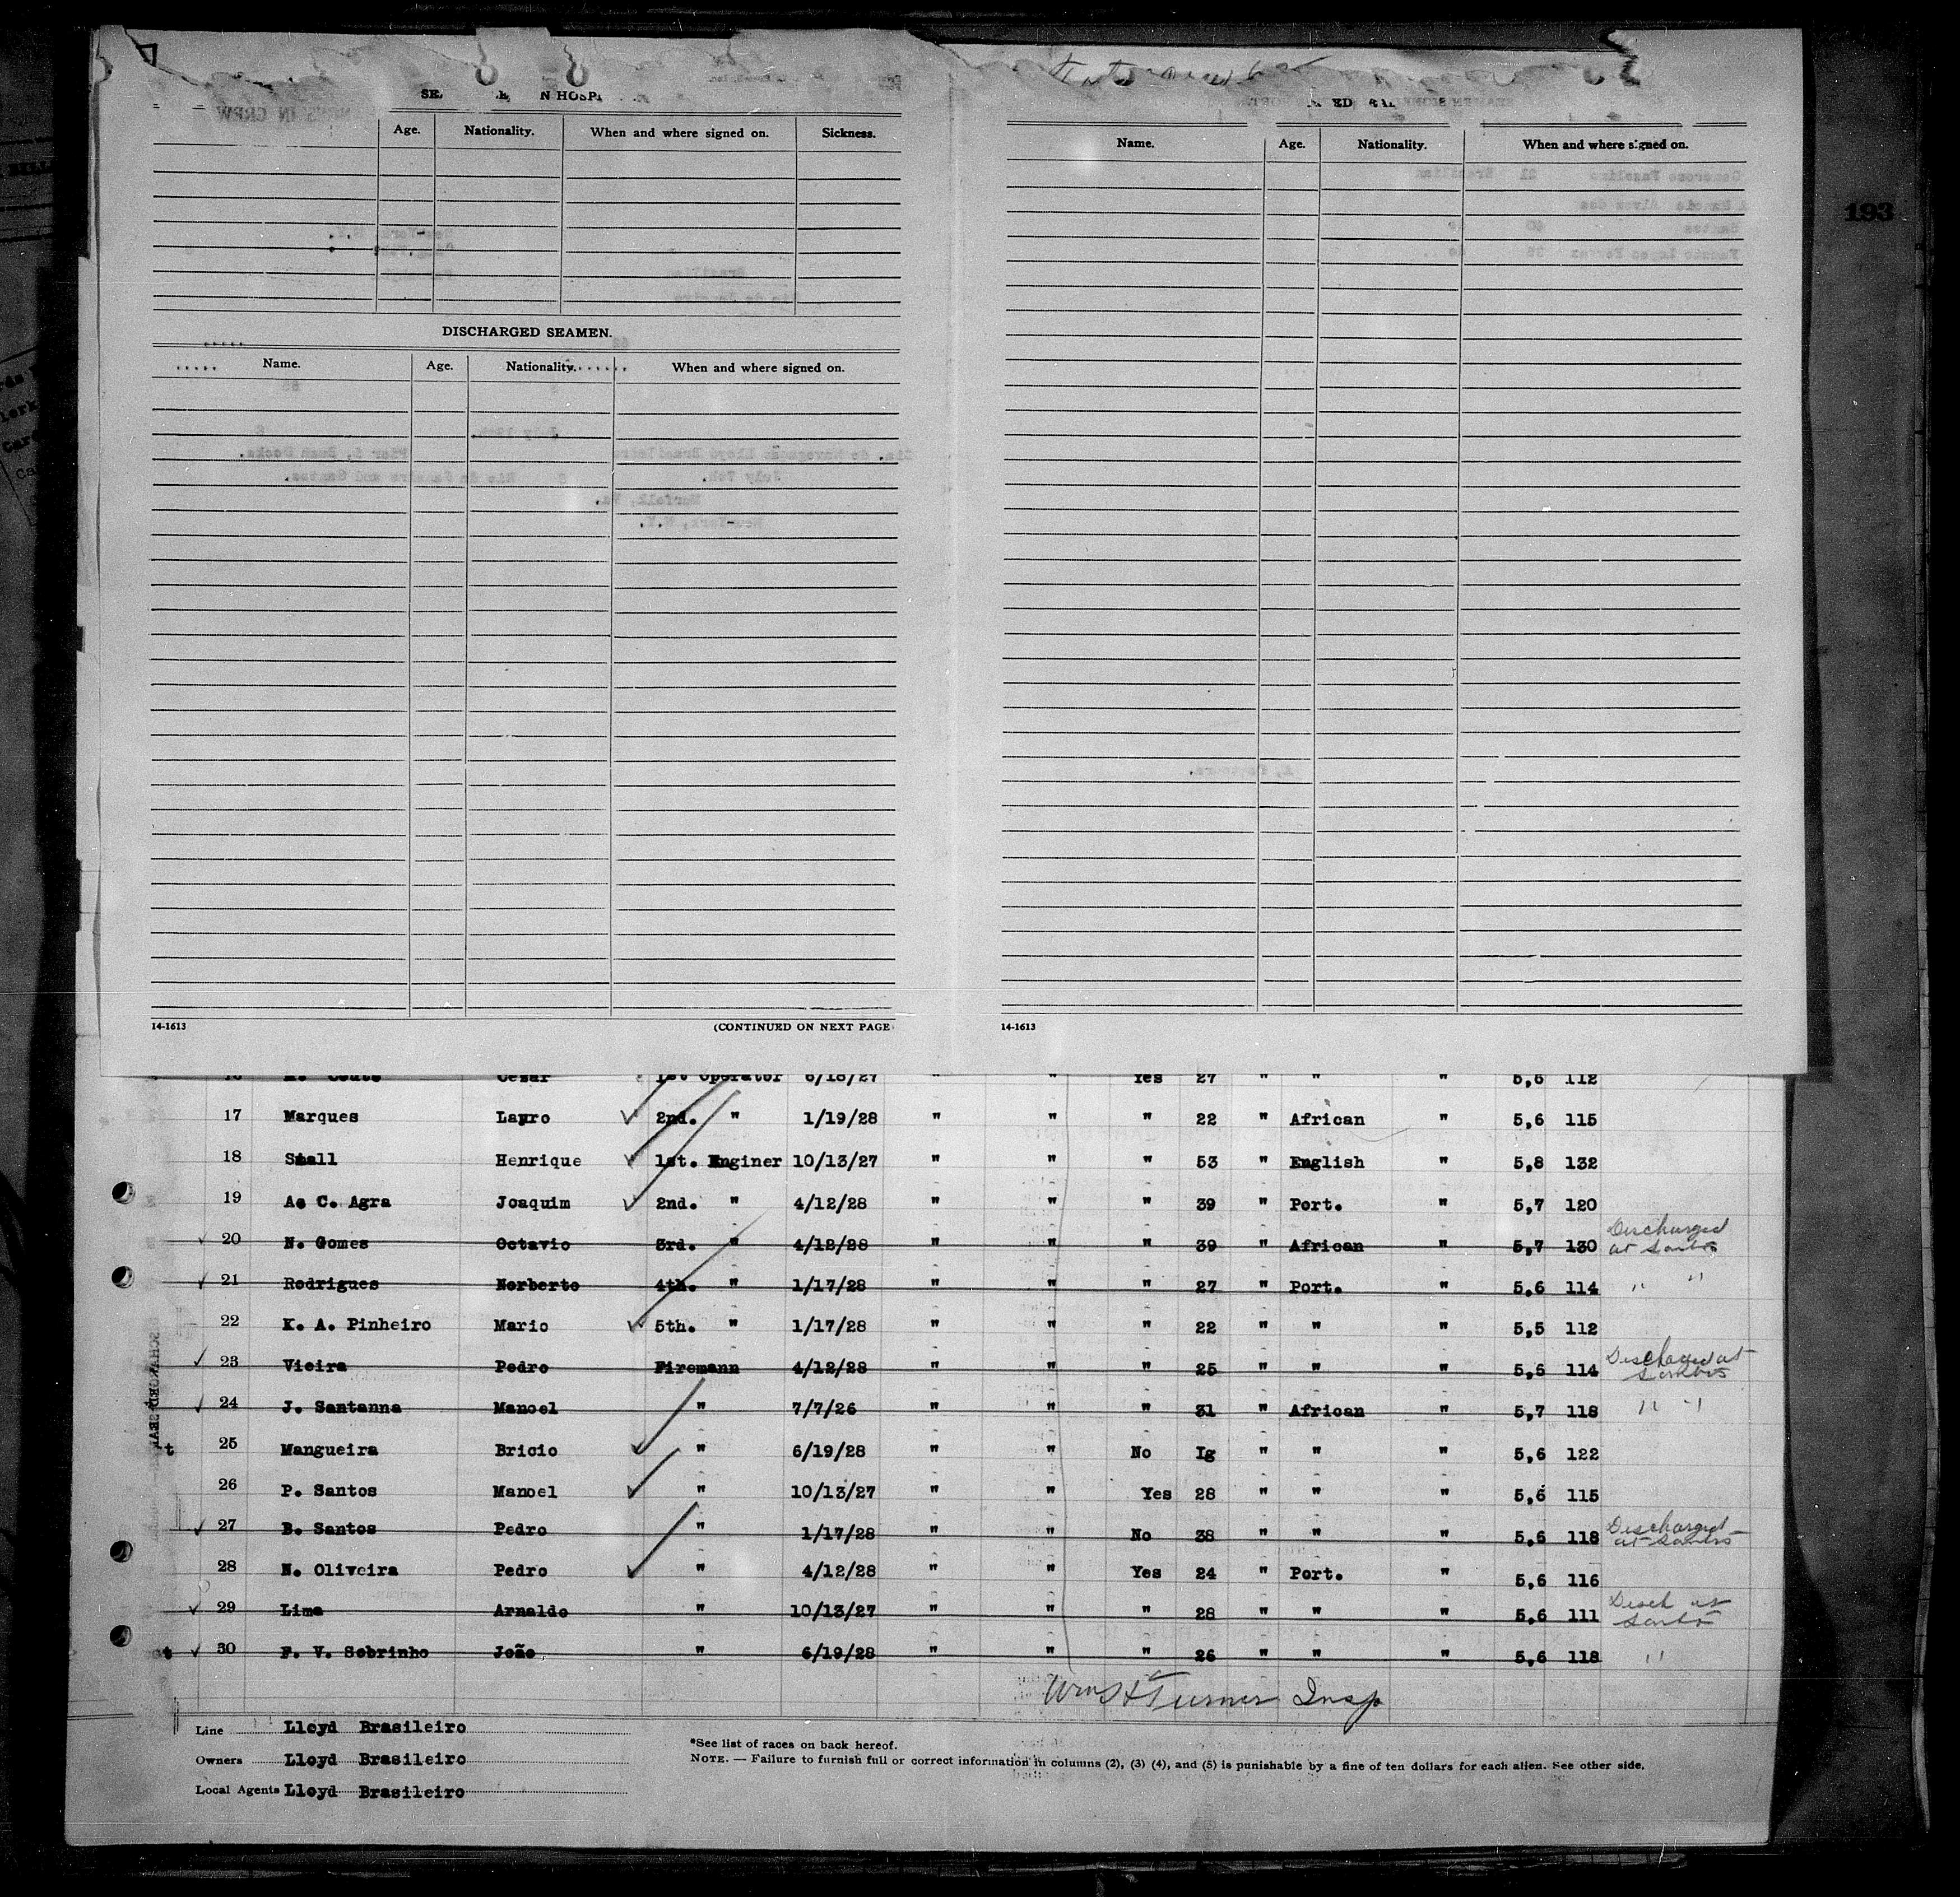 193
N HOSPI
Age. Nationality. When and where signed on. Sickness.
DISCHARGED SEAMEN.
Name. Age. Nationality. When and where signed on.
14-1613 (CONTINUED ON NEXT PAGE
Name. Age. Nationality. When and where signed on.
14-1613
16 Couto Cezar 1st Operator 6/18/27 " " Yes 27 " " " 5,6 112
17 Marques Layro 2nd. " 1/19/28 " " " 22 " African " 5,6 115
18 Small Henrique 1st. Enginer 10/13/27 " " " 53 " English " 5,8 132
19 A. C. Agra Joaquim 2nd. " 4/12/28 " " " 39 " Port. " 5,7 120
20 N. Gomes Octavio 3rd. " 4/12/28 " " " 39 " African " 5,7 130 Discharged at Santos
21 Rodrigues Norberto 4th. " 1/17/28 " " " 27 " Port. " 5,6 114 " "
22 K. A. Pinheiro Mario 5th. " 1/17/28 " " " 22 " " " 5,5 112
23 Vieira Pedro Firemann 4/12/28 " " " 25 " " " 5,6 114 Discharged at Santos
24 J. Santanna Manoel " 7/7/26 " " " 31 " African " 5,7 118 " "
25 Mangueira Bricio " 6/19/28 " " No Ig " " " 5,6 122
26 P. Santos Manoel " 10/13/27 " " Yes 28 " " " 5,6 115
27 B. Santos Pedro " 1/17/28 " " No 38 " " " 5,6 118 Discharged at Santos
28 N. Oliveira Pedro " 4/12/28 " " Yes 24 " Port. " 5,6 116
29 Lima Arnaldo " 10/13/27 " " " 28 " " " 5,6 111 Disch at Santos
30 F. V. Sobrinho João " 6/19/28 " " " 26 " " " 5,6 118 "
Wm H Turner Insp
Line Lloyd Brasileiro
Owners Lloyd Brasileiro
Local Agents Lloyd Brasileiro
*See list of races on back hereof.
NOTE. — Failure to furnish full or correct information in columns (2), (3) (4), and (5) is punishable by a fine of ten dollars for each alien. See other side.